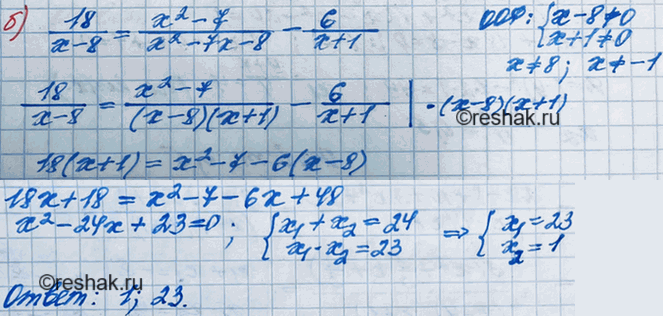 б) 18/(x-8) = (x²-7)/(x²-7x-8) - 6/(x+1)   ООФ: { x-8≠0
x+1≠0
x≠8; x≠-1
18/(x-8) = (x²-7)/((x-8)(x+1)) - 6/(x+1) | ·(x-8)(x+1)
©reshak.ru
18(x+1) = x²-7-6(x-8)
18x+18 = x²-7-6x+48
x²-24x+23=0; { x₁+x₂=24   ⇒ { x₁=23
x₁·x₂=23   x₂=1
©reshak.ru
Ответ: 1; 23.